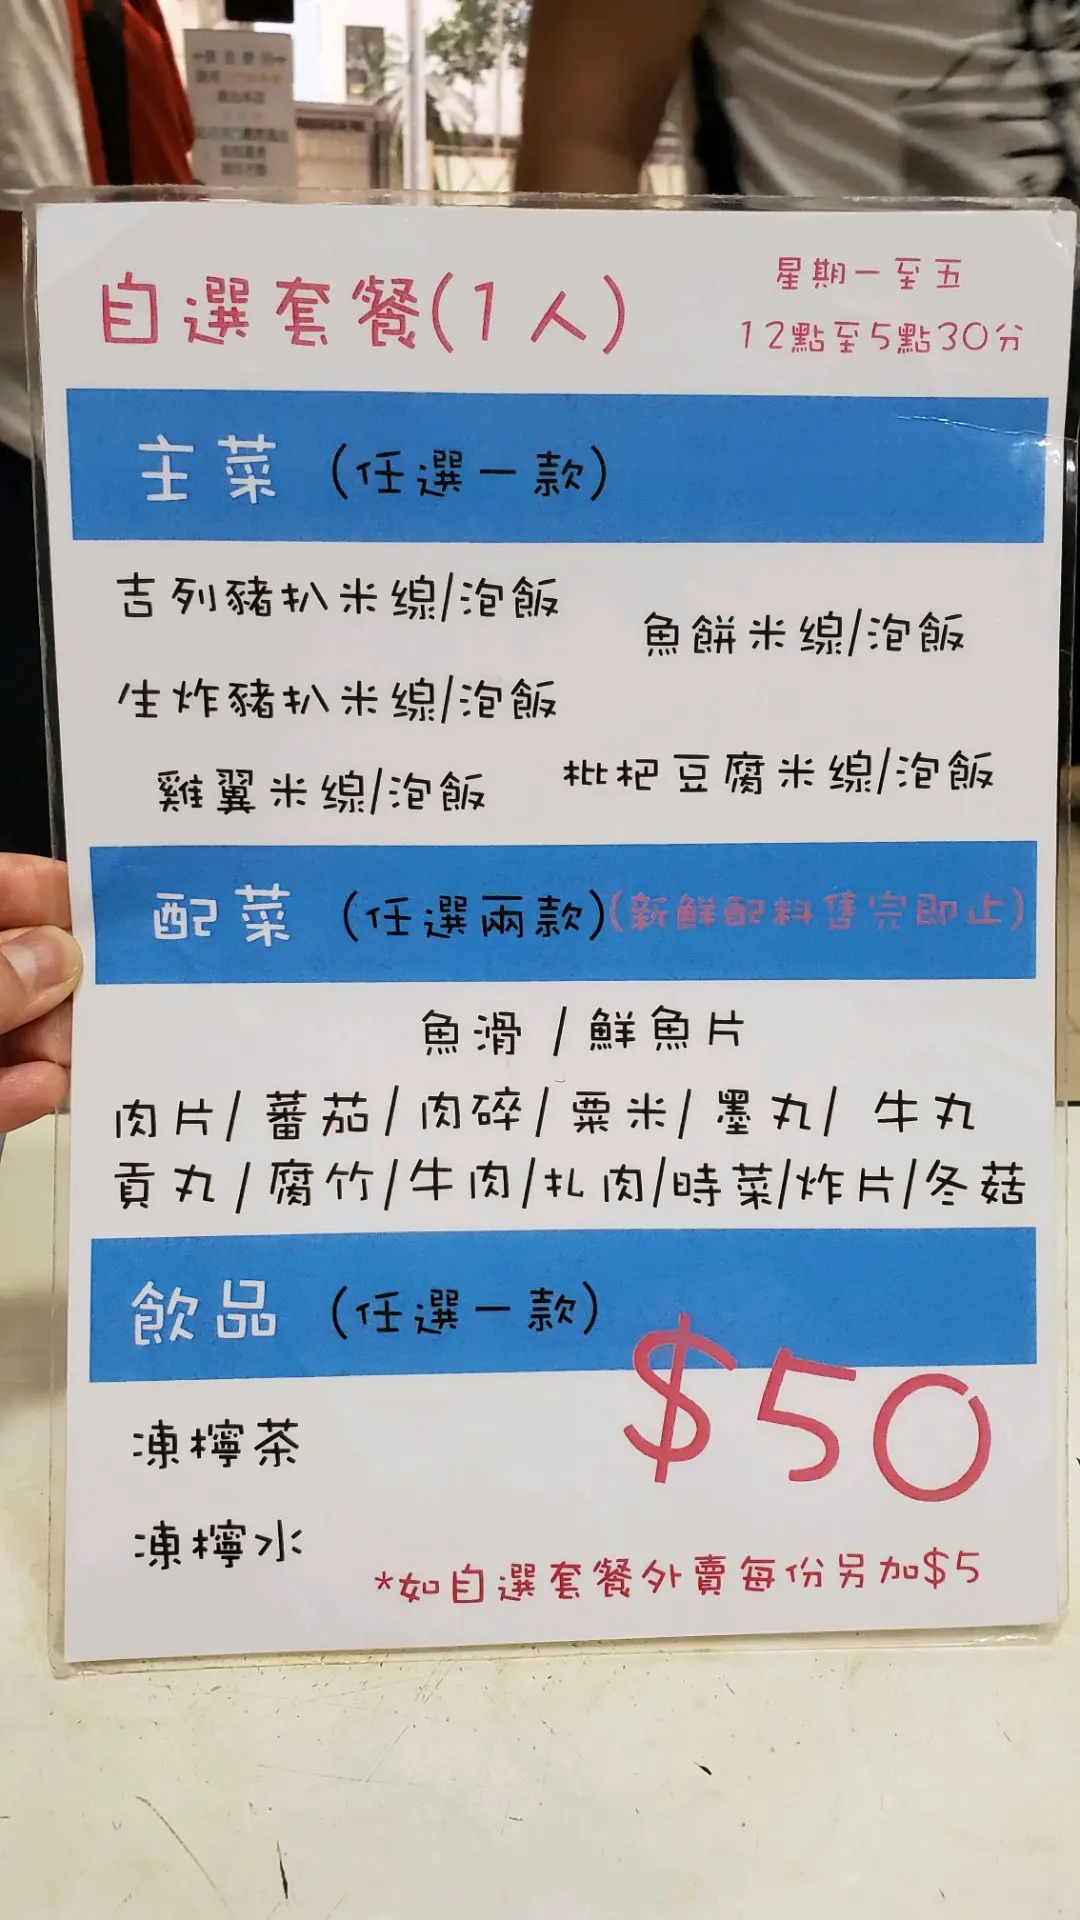 自選套餐(1人)
星期一至五
12點至5點30分
主菜 (任選一款)
吉列豬扒米線/泡飯
魚餅米線/泡飯
生炸豬扒米線/泡飯
枇杷豆腐米線/泡飯
雞翼米線/泡飯
配菜 (任選兩款)(新鮮配料售完即止)
魚滑 / 鮮魚片
肉片/ 蕃茄/ 肉碎/ 粟米/ 墨丸/ 牛丸
貢丸 / 腐竹/牛肉/扎肉/時菜/炸片/冬菇
飲品 (任選一款)
$50
凍檸茶
凍檸水
*如自選套餐外賣每份另加$5